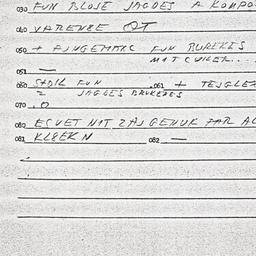 030 FUN BLOJE JAGDES A KOMPO
040 VARENBE OT
050 + AJNGEMAKC FUN BUREKES
MIT CUKER....
051 —
060 STOIL FUN .061 + TEJGLEZ
= JAGDES BRUREPES
070 .0
080 ES VET NIT ZAJ GENUK FAR AL
081 KLEEKN 082 —